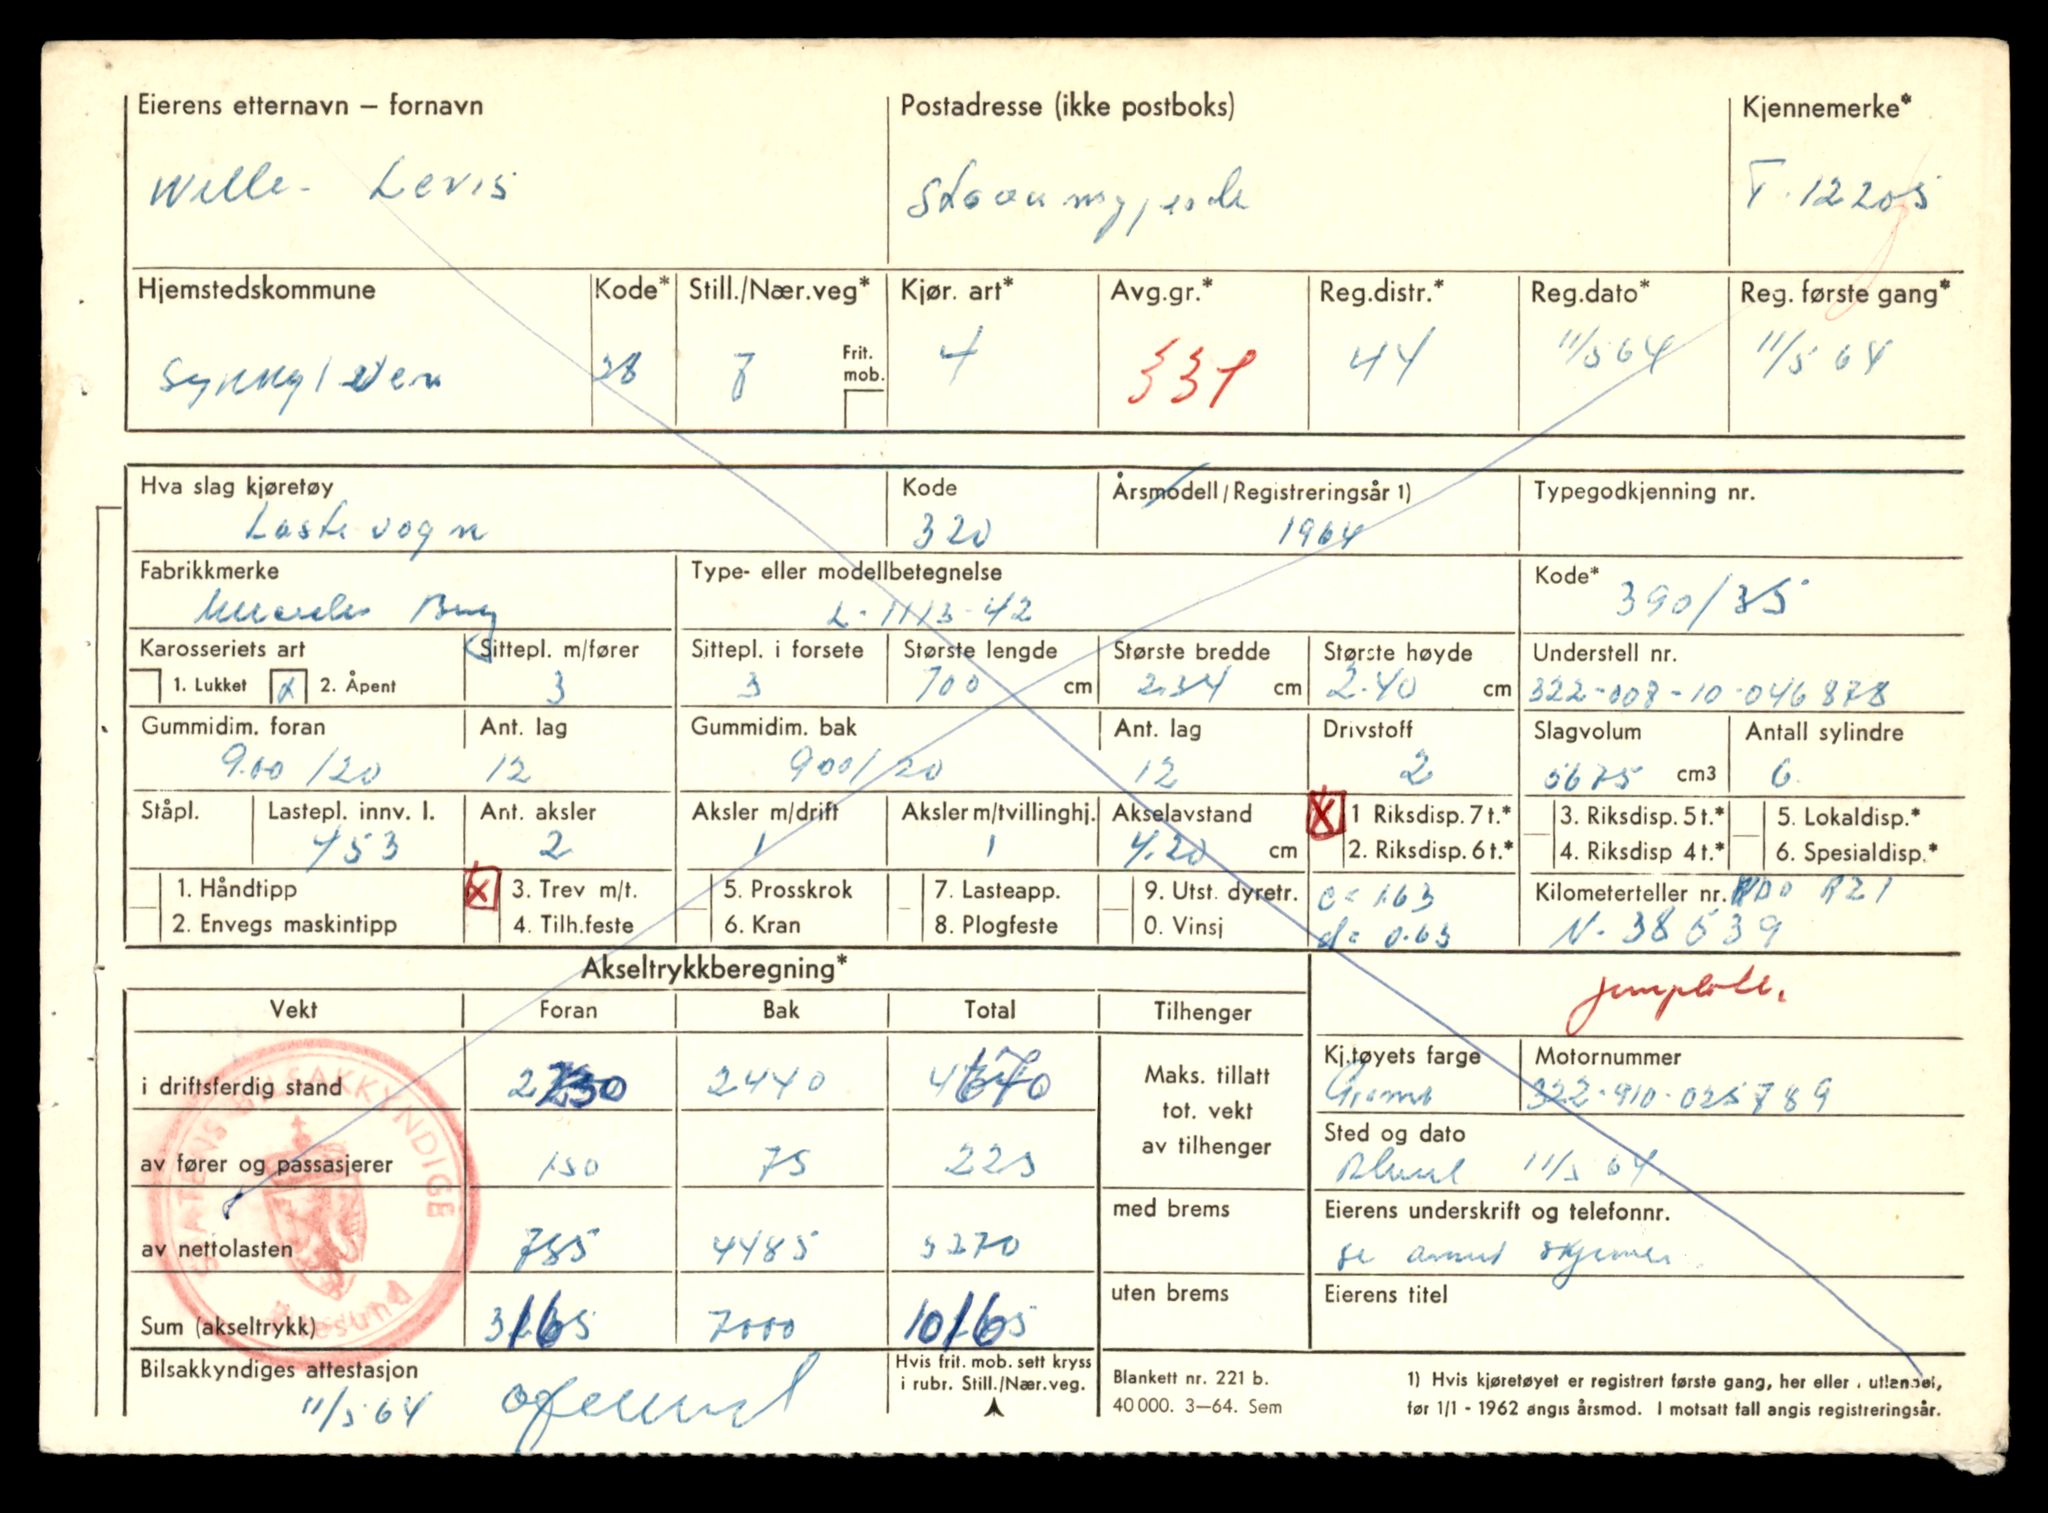 Eierens etternavn – fornavn
Postadresse (ikke postboks)
Kjennemerke*
Wille - Levis
T. 12205
Hjemstedskommune
Kode*
Still./Nær.veg*
Kjør. art*
Avg.gr.*
Reg.distr.*
Reg.dato*
Reg. første gang*
Frit. mob.
38
7
4
331
44
11/5 64
11/5 64
Hva slag kjøretøy
Kode
Årsmodell/Registreringsår 1)
Typegodkjenning nr.
Lastevogn
320
1964
Fabrikkmerke
Type- eller modellbetegnelse
Kode*
L-1113-42
390/35
Karosseriets art
Sittepl. m/fører
Sittepl. i forsete
Største lengde
Største bredde
Største høyde
Understell nr.
1. Lukket
X
2. Åpent
3
3
700 cm
2.34 cm
2.40 cm
322-008-10-046878
Gummidim. foran
Ant. lag
Gummidim. bak
Ant. lag
Drivstoff
Slagvolum
Antall sylindre
9.00/20
12
900/20
12
2
5675 cm3
6
Ståpl.
Lastepl. innv. l.
Ant. aksler
Aksler m/drift
Aksler m/tvillinghj.
Akselavstand
X
1 Riksdisp. 7 t.*
3. Riksdisp. 5 t.*
5. Lokaldisp.*
453
2
1
1
4.20 cm
2. Riksdisp. 6 t.*
4. Riksdisp 4 t.*
6. Spesialdisp.*
1. Håndtipp
X
3. Trev m/t.
5. Prosskrok
7. Lasteapp.
9. Utst. dyretr.
c = 1.63
Kilometerteller nr.
R21
2. Envegs maskintipp
4. Tilh.feste
6. Kran
8. Plogfeste
0. Vinsj
d = 0.63
N. 38539
Akseltrykkberegning*
Vekt
Foran
Bak
Total
Tilhenger
Kj.tøyets farge
Motornummer
i driftsferdig stand
2440
Maks. tillatt
tot. vekt
av tilhenger
322-910-025789
Sted og dato
av fører og passasjerer
150
75
225
11/5 64
med brems
Eierens underskrift og telefonnr.
av nettolasten
785
4485
5270
se annet skjema
uten brems
Eierens titel
Sum (akseltrykk)
7000
STATENS BILSAKKYNDIGE
Ålesund
Bilsakkyndiges attestasjon
11/5 64
Hvis frit. mob. sett kryss
i rubr. Still./Nær.veg.
Blankett nr. 221 b.
40 000. 3—64. Sem
1) Hvis kjøretøyet er registrert første gang, her eller i utlandet,
før 1/1 - 1962 angis årsmod. I motsatt fall angis registreringsår.